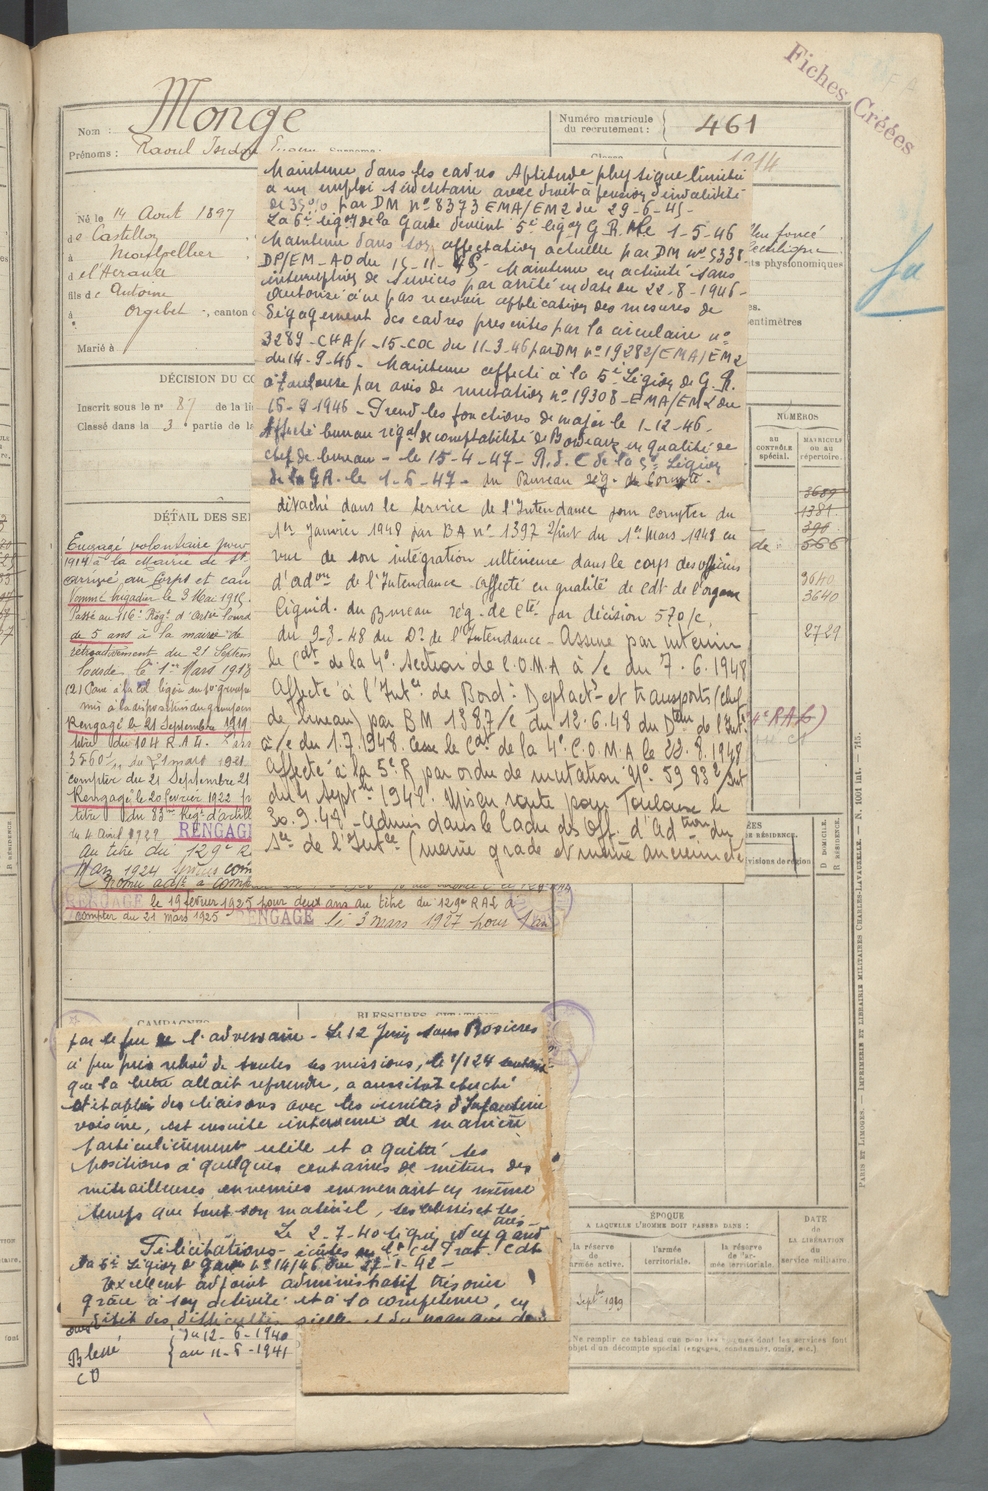 Fiches Créées
Nom : Monge
Prénoms : Raoul
Numéro matricule
du recrutement : 461
1914
Né le 14 Août 1897
de Castillon
à Montpellier
de l'Hérault
fils de Antoine
à Orgibet, canton
Marié à
DÉCISION DU CO
Inscrit sous le n° 87 de la li
Classé dans la 3 partie de la
DÉTAIL DES SE
leu foncé
ts physionomiques
es.
entimètres
fa
NUMÉROS
AU
CONTRÔLE
spécial.
MATRICULE
OU AU
répertoire.
3689
1381
399
de 666
3640
3640
2729
Maintenu dans les cadres Aptitude physique limitée
à un emploi sédentaire avec droit à pension d'invalidité
de 35% par DM n° 8373 EMA/EM2 du 29-6-45-
La 6e légion de la Garde devient 5e légion G.R. le 1-5-46
Maintenu dans son affectation actuelle par DM n° 5338-
DP/EM-AO du 15-11-45- Maintenu en activité sans
interruption de services par arrêté en date du 22-8-1946-
Autorisé à ne pas recevoir application des mesures de
dégagement des cadres prescrites par la circulaire n°
3289-CHA/1-15-COC du 11-3-46 par DM n° 19282/EMA/EM2
du 14-9-46- Maintenu affecté à la 5e Légion de G.R.
à Toulouse par avis de mutation n° 19308-EMA/EM2 du
15-9-1946- Prend les fonctions de major le 1-12-46-
Affecté bureau régal de comptabilité de Bordeaux en qualité de
chef de bureau- le 15-4-47- R.d.C de la 5e Légion
de la GR. le 1-6-47- du Bureau rég. de Compté-
détaché dans le service de l'Intendance pour compter du
1er Janvier 1948 par BA n° 1397 2/Int du 1er Mars 1948 en
vue de son intégration ultérieure dans le corps des officiers
d'adon de l'Intendance affecté en qualité de Cdt de l'organe
liquid. du Bureau rég. de Cté par décision 570/c,
du 9-3-48 du Dr de l'Intendance- Assure par interim
le Cdt de la 4e Section de C.O.M.A à/c du 7.6.1948
Affecté à l'Intce de Bord: Déplact et transports (chef
de bureau) par BM 1887/c du 12.6.48 du Dteur de l'Int.
à/c du 1.7.1948. Cesse le Cdt de la 4e C.O.M.A le 23.8.1948
affecté à la 5e R par ordre de mutation N° 5988 2/Int
du 4 Septbre 1948. Mis en route pour Toulouse le
30.9.48- admis dans le cadre des Off. d'Adtion du
Sce de l'Intce (même grade et même ancienneté
Engagé volontaire pour
1914 à la Mairie de
arrivé au Corps et can
Nommé brigadier le 3 Mai 1915.
Passé au 116e Régt d'Artie lourde
de 5 ans à la mairie de
rétroactivement du 21 Septem
lourde, le 1er Mars 1918
mis à la disposition du
Rengagé le 21 Septembre 1919
titre du 104 R.A.L.
3560 du mars 1921
compter du 21 Septembre 21
Rengagé le 20 février 1922 p
titre du 33me Régt d'artill
le 4 Avril 1922 RENGAG
au titre du 129e R
Mars 1924
Promu adjt à comp
RENGAGÉ le 19 février 1925 pour deux ans au titre du 129e RAL à
compter du 21 mars 1925- RENGAGÉ le 3 mars 1927 pour 1 an
4e RAL)
ÉES
DE RÉSIDENCE.
visions de région
D. DOMICILE.
R. RÉSIDENCE.
CAMPAGNES
BLESSURES, CITATIONS
par le feu de l'adversaire- Le 12 Juin sous Rosières
à peu près relevé de toutes ses missions, le 1/124
que la lutte allait reprendre, a aussitôt cherché
et établi des liaisons avec les unités d'Infanterie
voisine, est ensuite intervenu de manière
particulièrement utile et a quitté ses
positions à quelques centaines de mètres des
mitrailleuses ennemies emmenant en même
temps que tout son matériel, ses blessés et ses
tués-
Le 2-7-40 signé Weygand
Félicitations- écrites du Lt Cel Cdt
la 6e Légion de Garde n° 141/46 du 27-1-42-
Excellent adjoint administratif
grâce à son activité et à sa compétence, en
dépit des difficultés
Blessé { du 12-6-1940
au 11-6-1941
CD
ÉPOQUE
A LAQUELLE L'HOMME DOIT PASSER DANS :
la réserve
de l'armée active.
l'armée
territoriale.
la réserve
de l'ar-
mée territoriale.
DATE
de
LA LIBÉRATION
du
service militaire.
Septbre 1919
Ne remplir ce tableau que pour les hommes dont les services font
objet d'un décompte spécial (engagés, condamnés, omis, etc.)
PARIS ET LIMOGES. — IMPRIMERIE ET LIBRAIRIE MILITAIRES CHARLES-LAVAUZELLE. — N. 1001 int. — 715.